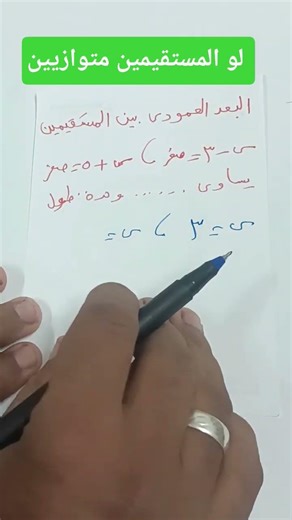 لو المستقيمين متوازيين
البعد العمودى بين المستقيمين
س - ٣ = صفر ، س + ٥ = صفر
يساوى ...... وحدة طول
س = ٣ ، س =